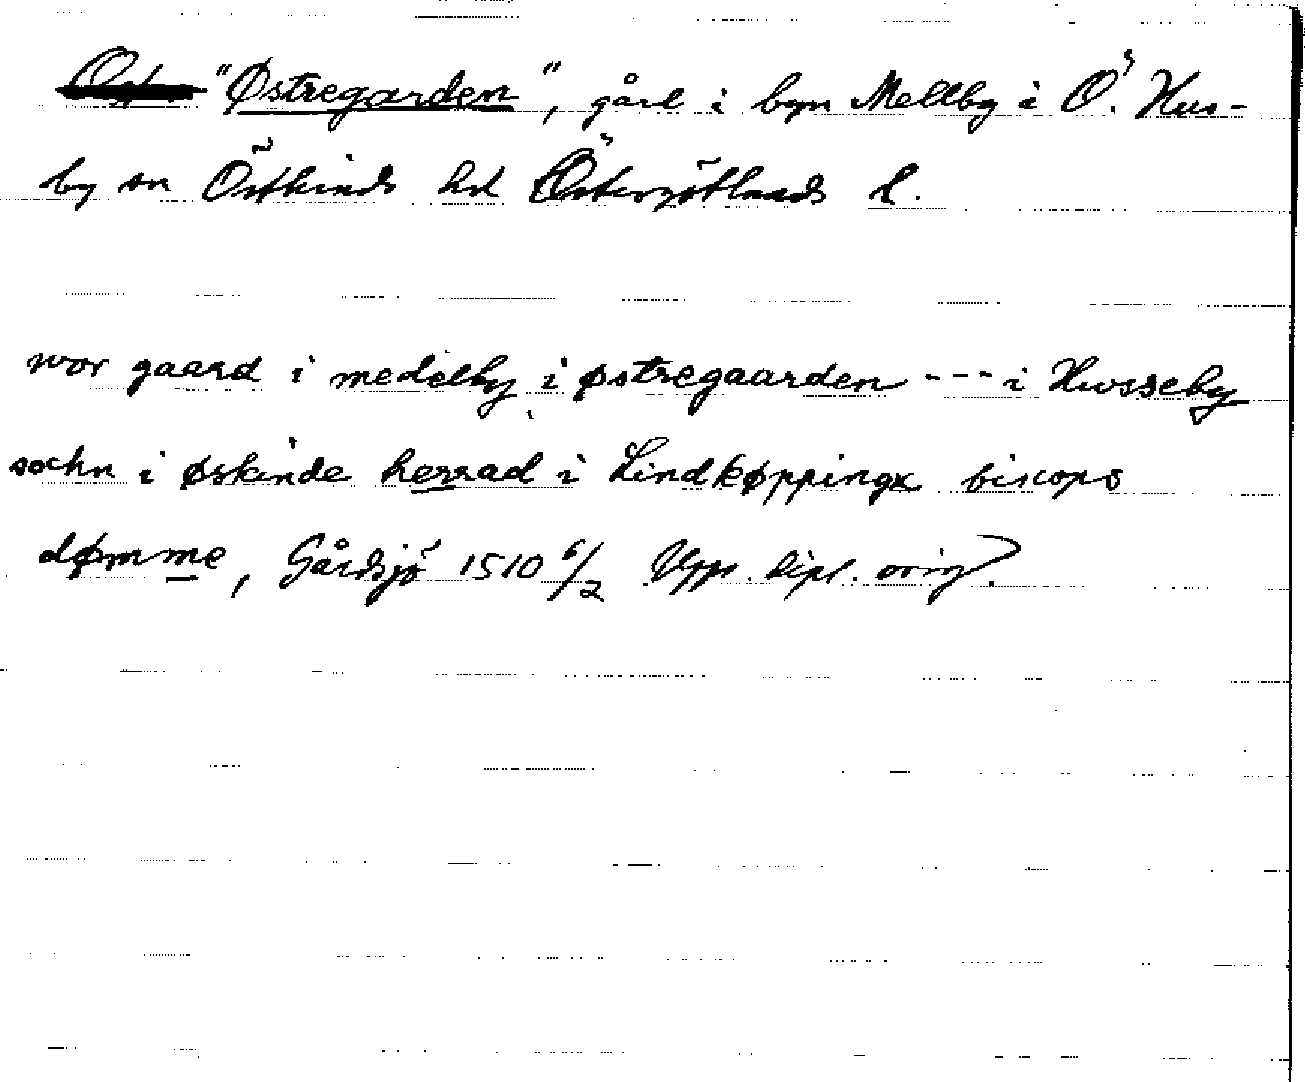 "Østregarden", gård i byn Mellby i Ö. Hus-
by sn Östkinds hd Östergötlands l.
wor gaard i medelby i østregaarden --- i Husseby
sochn i øskinde herrad i Lindkøppingx biscops
dømme, Gårdsjö 1510 6/2 Upps. dipl. orig.